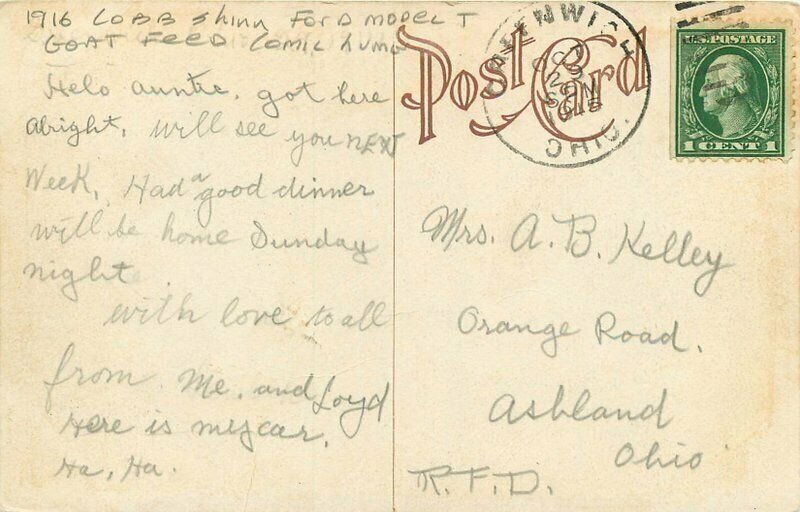 1916 COBB Shinn FORD MODEL T
GOAT FEED COMIC humo
Helo auntie, got here
alright, will see you nex
week, Had a good dinner
will be home Sunday
night
with love to all
from Me, and Loyd
Here is my car,
Ha, Ha.
Post Card
GREENWICH
OHIO.
U.S. POSTAGE
1 CENT 1
Mrs. A. B. Kelley
Orange Road.
Ashland
Ohio
R.F.D.